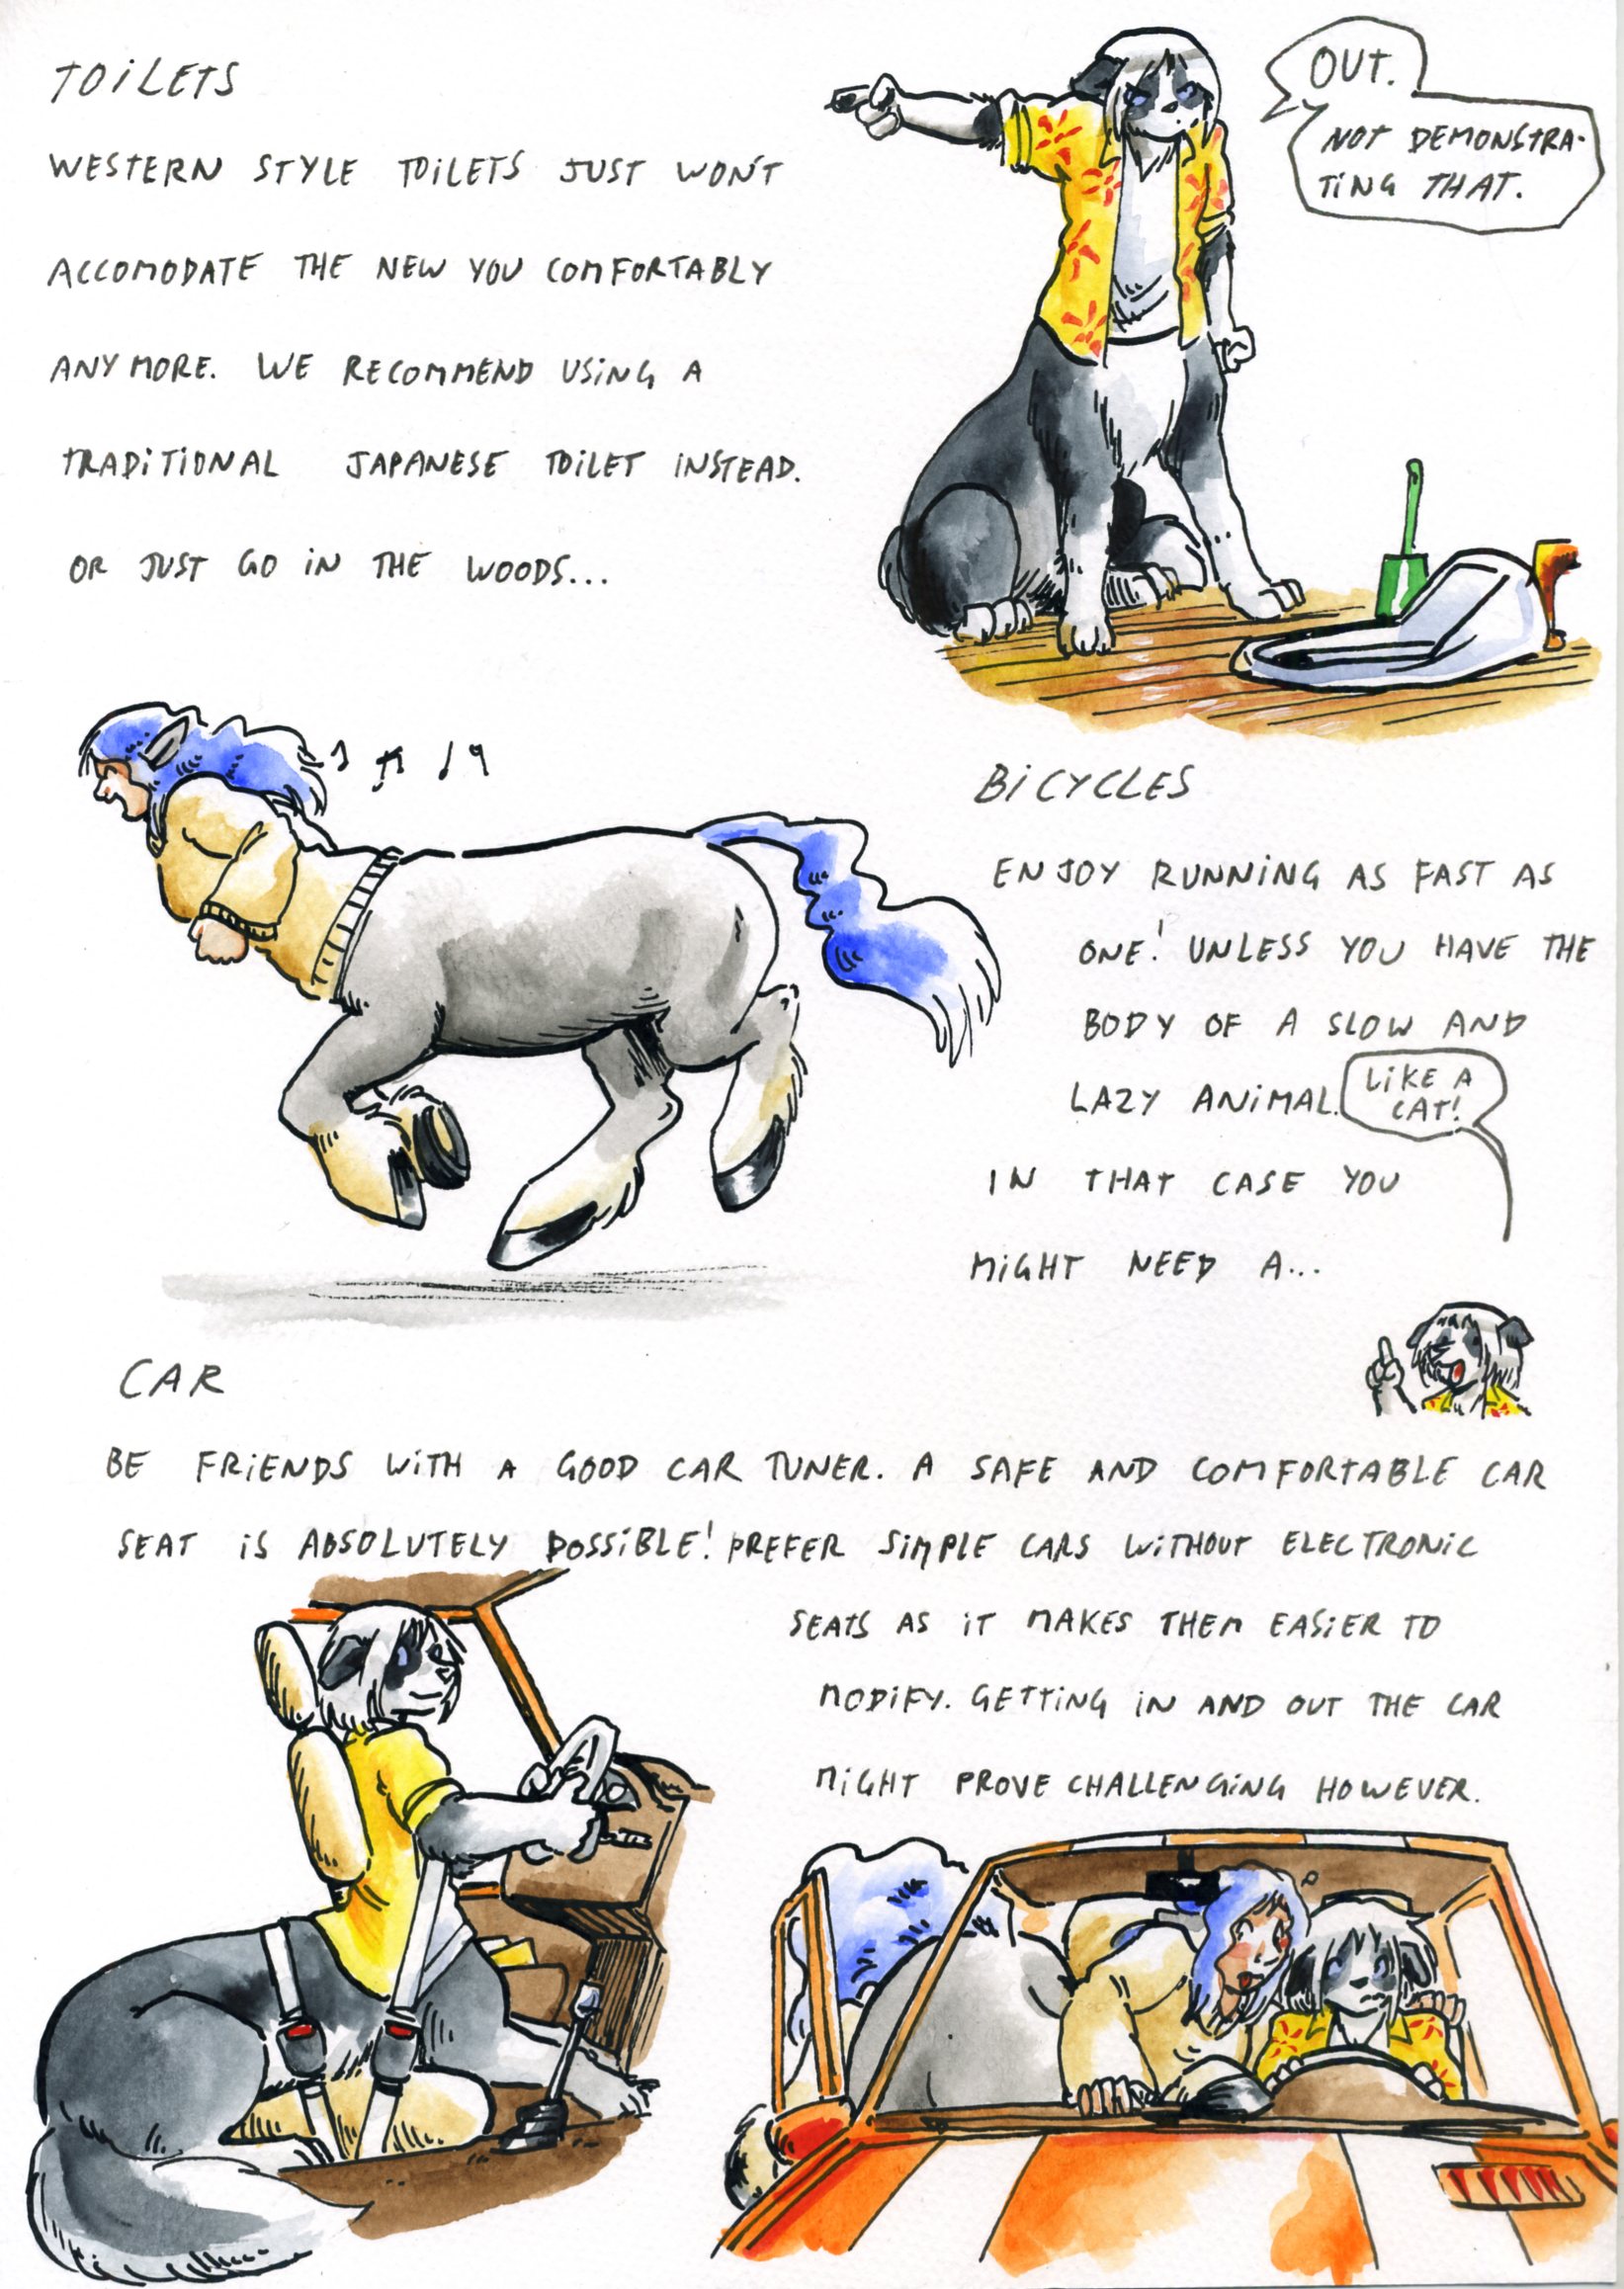 TOILETS
WESTERN STYLE TOILETS JUST WON'T
ACCOMODATE THE NEW YOU COMFORTABLY
ANYMORE. WE RECOMMEND USING A
TRADITIONAL JAPANESE TOILET INSTEAD.
OR JUST GO IN THE WOODS...
OUT.
NOT DEMONSTRA-
TING THAT.
BICYCLES
ENJOY RUNNING AS FAST AS
ONE! UNLESS YOU HAVE THE
BODY OF A SLOW AND
LAZY ANIMAL.
LIKE A
CAT!
IN THAT CASE YOU
MIGHT NEED A...
CAR
BE FRIENDS WITH A GOOD CAR TUNER. A SAFE AND COMFORTABLE CAR
SEAT IS ABSOLUTELY POSSIBLE! PREFER SIMPLE CARS WITHOUT ELECTRONIC
SEATS AS IT MAKES THEM EASIER TO
MODIFY. GETTING IN AND OUT THE CAR
MIGHT PROVE CHALLENGING HOWEVER.